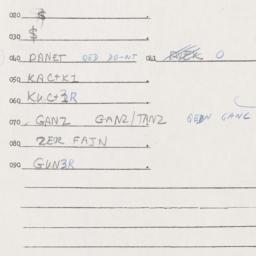 020 $
030 $
040 DANET QED DO-NT 041 O
050 KACTKI
060 KUCt3R
070 GANZ GANZ/TANZ GANG
080 ZER FAJN
090 GUN3R